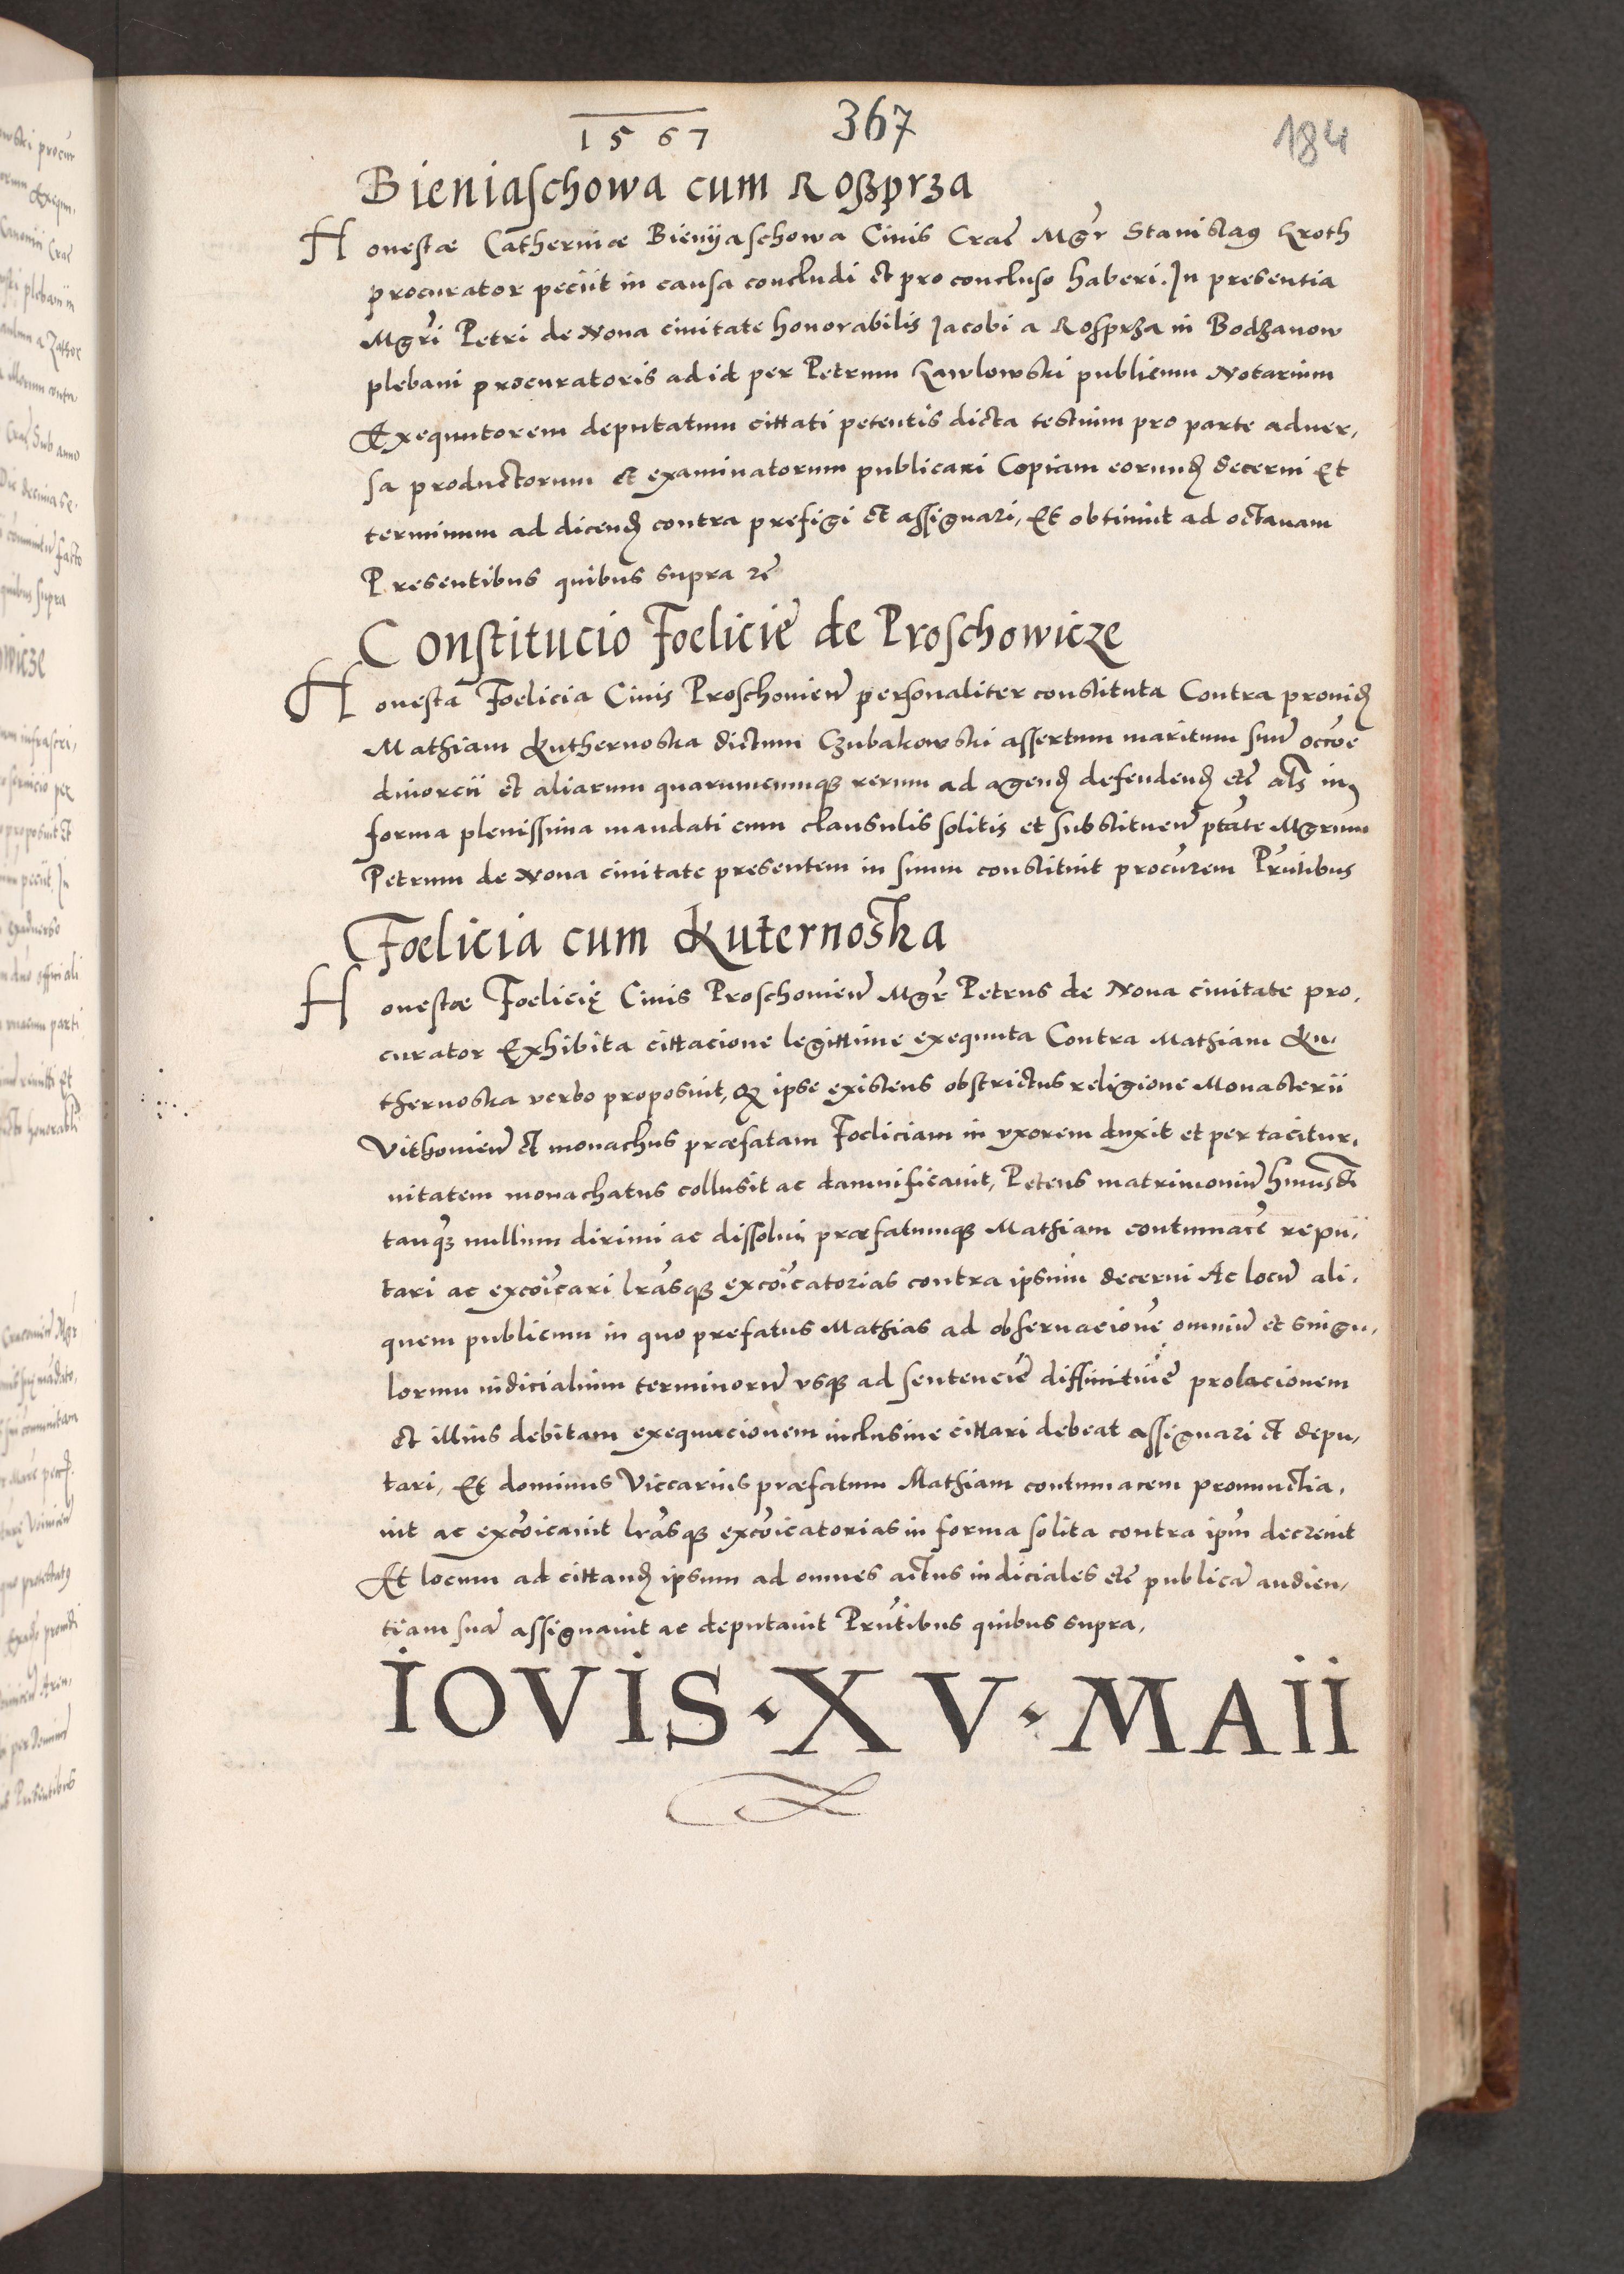 1567 367 184
Bieniaschowa cum Roßprza
Honestæ Catherinæ Bieniÿaschowa Civis Crac̃ Mgr̃ Stanislaus Kroth
procurator peciit in causa concludi et pro concluso haberi. In presentia
Mgr̃i Petri de Nova civitate honorabilis Jacobi a Rosprza in Bodzanow
plebani procuratoris ad id per Petrum Kawlowski publicum Notarium
Exequutorem deputatum cittati petentis dicta testium pro parte adver,
sa productorum et examinatorum publicari Copiam eorund̃ decerni Et
terminum ad dicend̃ contra prefigi et assignari, Et obtinuit ad octavam
Presentibus quibus supra rc̃
Constitucio Foelicie de Proschowicze
Honesta Foelicia Civis Proschovien̄ personaliter constituta Contra provid̃
Mathiam Kuthernoska dictum Czubakowski assertum maritum suū occõe
divorcii et aliarum quarumcumq; rerum ad agend̃ defendend̃ etc̃ al̃s in
forma plenissima mandati cum clausulis solitis et substituen̄ ptãte Mgrum
Petrum de Nova civitate presentem in suum constituit procur̃em Pr̃ntibus
Foelicia cum Kuternoska
Honestæ Foelicię Civis Proschovien̄ Mgr̃ Petrus de Nova civitate pro,
curator Exhibita cittacione legittime exequuta Contra Mathiam Ku,
thernoska verbo proposuit, q; ipse existens obstrictus religione Monasterii
Vithovien̄ et monachus præfatam Foeliciam in vxorem duxit et per tacitur,
nitatem monachatus collusit ac damnificavit, Petens matrimoniū hmõi
tanq; nullum dirimi ac dissolui præfatumq; Mathiam contumacē repu,
tari ac excõicari lr̃asq; excõicatorias contra ipsum decerni Ac locū ali,
quem publicum in quo prefatus Mathias ad observacionē omniū et singu,
lorum iudicialium terminorū vsq; ad sentencie diffinitive prolacionem
et illius debitam exequucionem inclusive cittari debeat assignari et depu,
tari, Et dominus Viccarius præfatum Mathiam contumacem pronunctia,
vit ac excõicavit lr̃asq; excõicatorias in forma solita contra ipm̄ decrevit
Et locum ad cittand̃ ipsum ad omnes actus iudiciales etc̃ publicā audien,
tiam suā assignavit ac deputavit Pr̃ntibus quibus supra,
IOVIS · XV · MAII